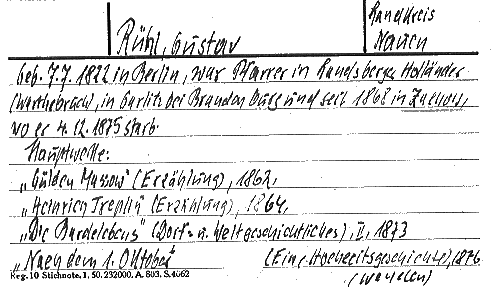 Rühl, Gustav
Landkreis
Nauen
geb. 7.7.1822 in Berlin, war Pfarrer in Landsberger Holländer
(Warthebruch), in Garlitz bei Brandenburg und seit 1868 in
wo er 4.12.1875 starb.
Hauptwerke:
„Gülden Mussow" (Erzählung), 1862,
„Heinrich Treplin" (Erzählung), 1864,
„Die Bardelebens" (Dorf- u. Weltgeschichtliches), II, 1873
„Nach dem 1. Oktober" (Eine Hochzeitsgeschichte), 1876
Reg. 10 Stichnote, 1. 50. 232000. A. 803. S. 4062